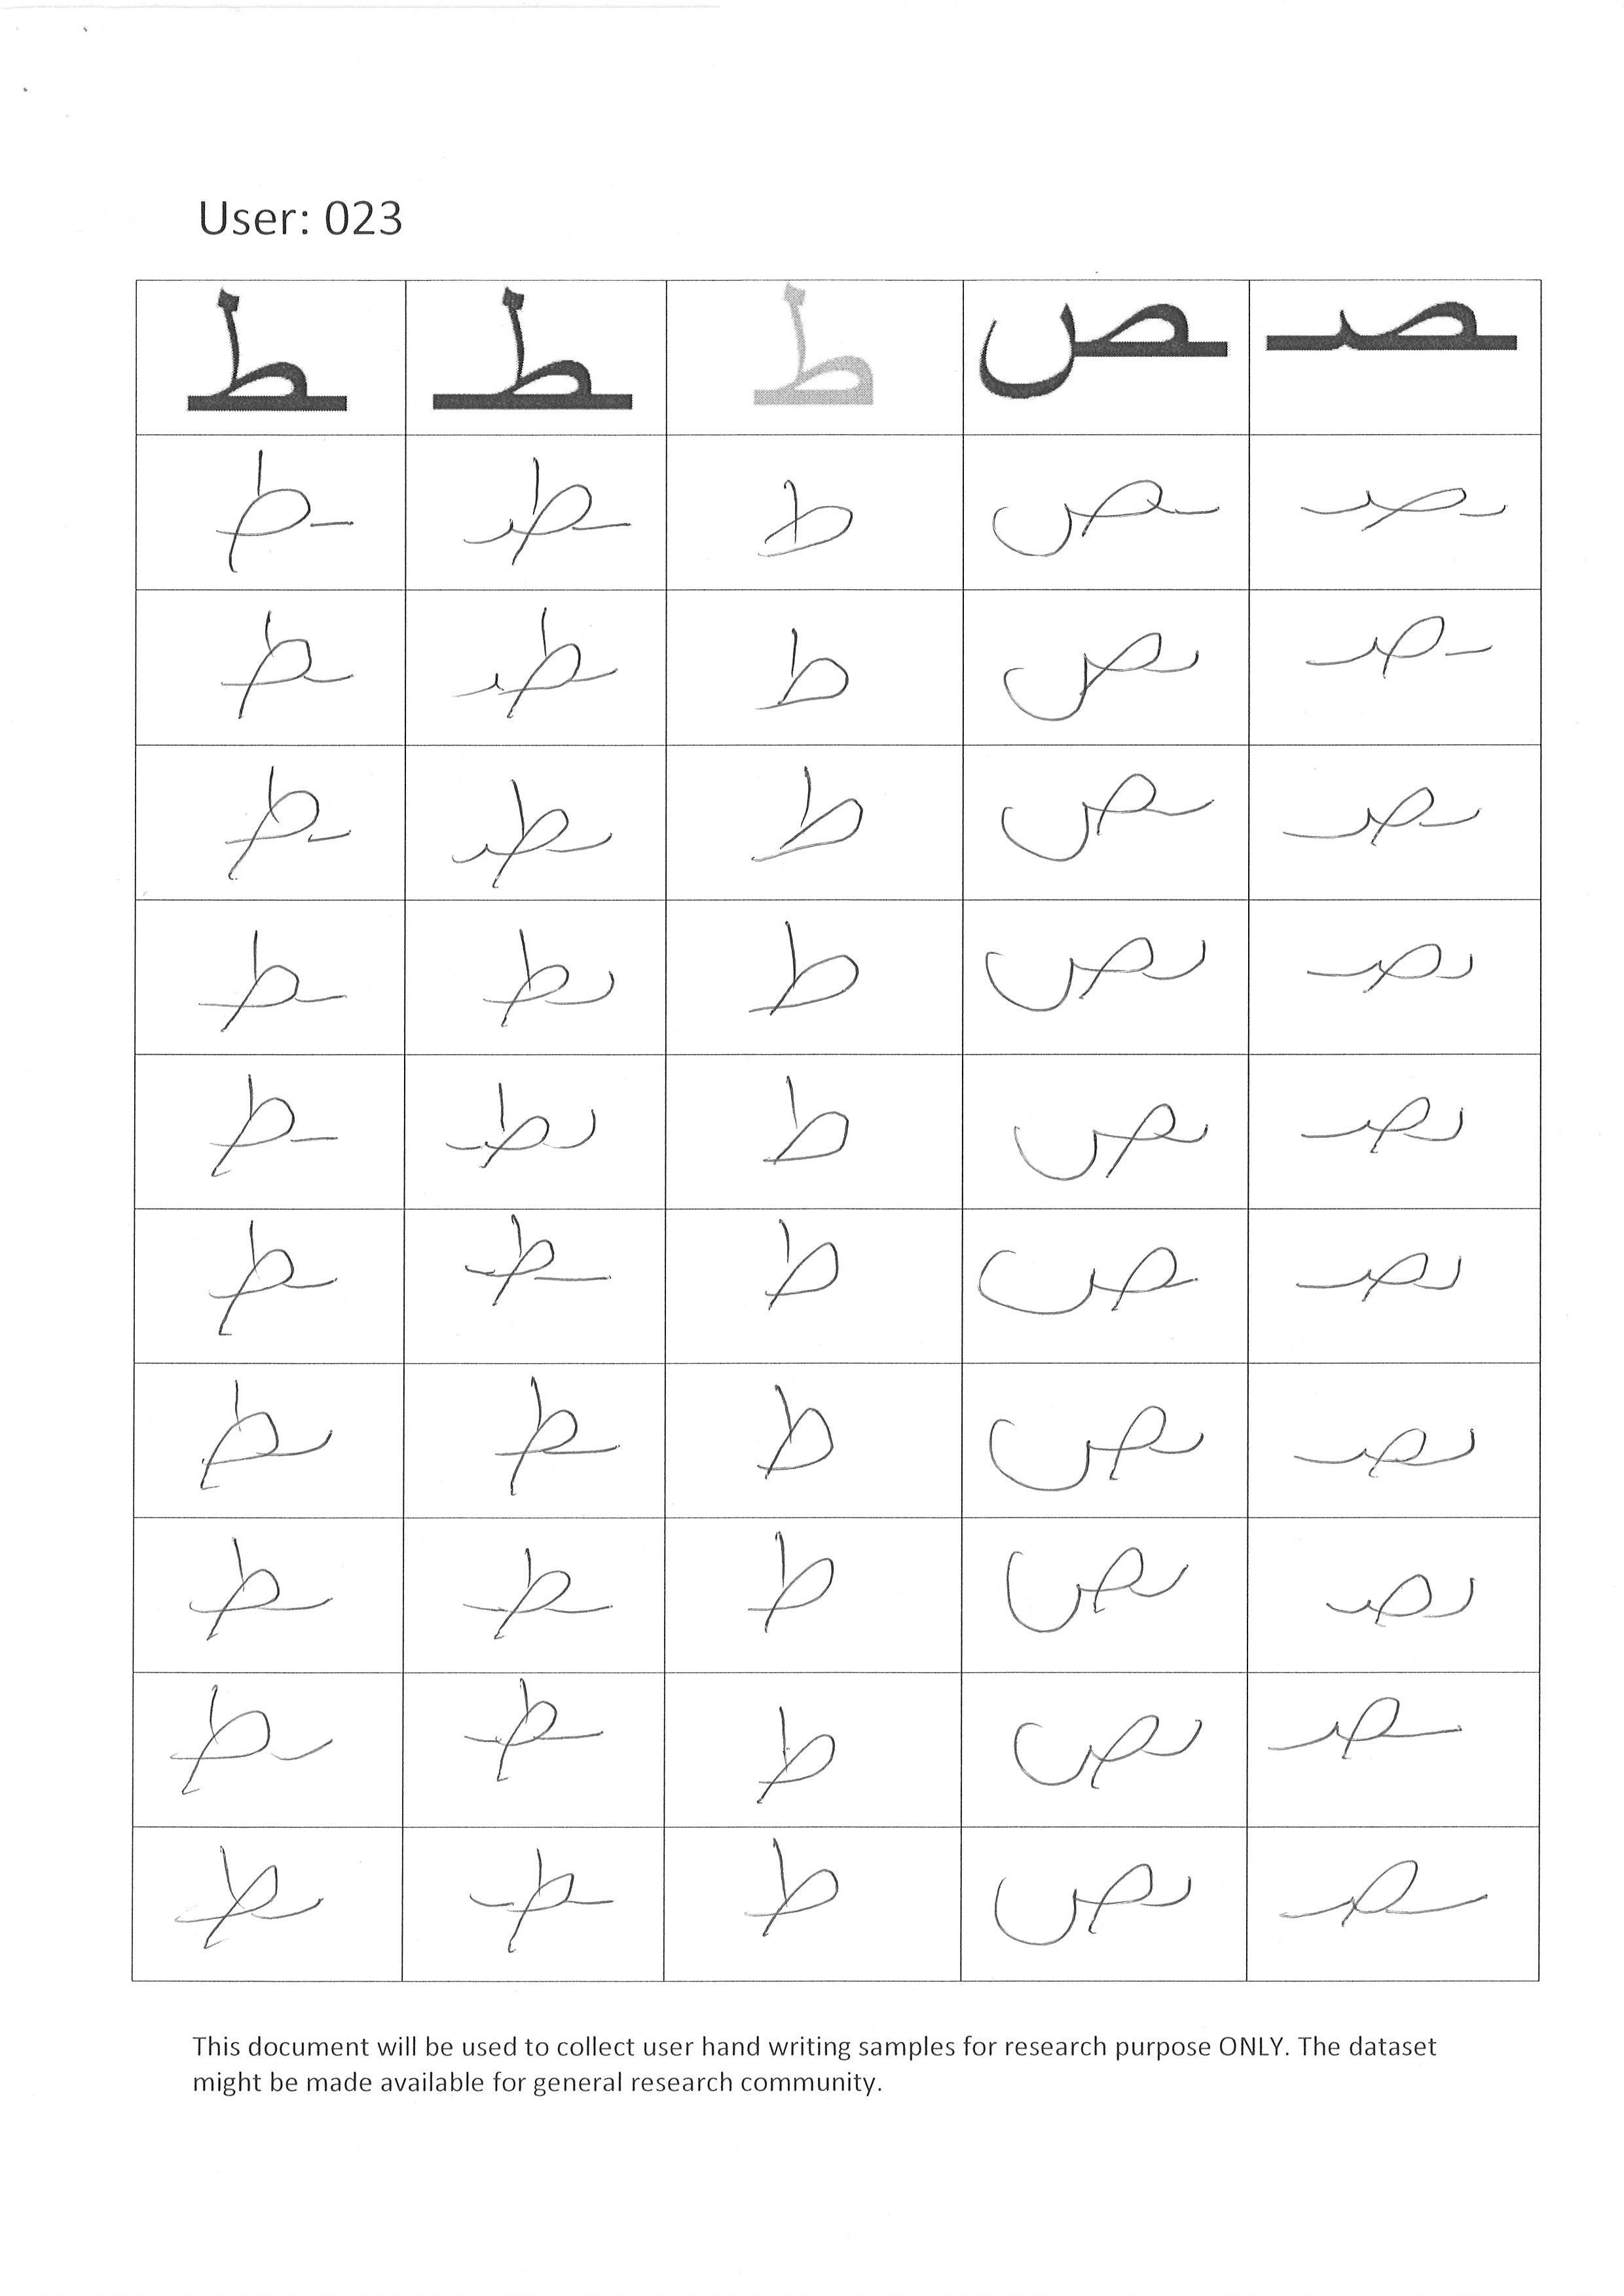 User: 023
ـصـ ـص ط ـطـ ـط
ـصـ ـص ط ـطـ ـط
ـصـ ـص ط ـطـ ـط
ـصـ ـص ط ـطـ ـط
ـصـ ـص ط ـطـ ـط
ـصـ ـص ط ـطـ ـط
ـصـ ـص ط ـطـ ـط
ـصـ ـص ط ـطـ ـط
ـصـ ـص ط ـطـ ـط
ـصـ ـص ط ـطـ ـط
ـصـ ـص ط ـطـ ـط
This document will be used to collect user hand writing samples for research purpose ONLY. The dataset
might be made available for general research community.